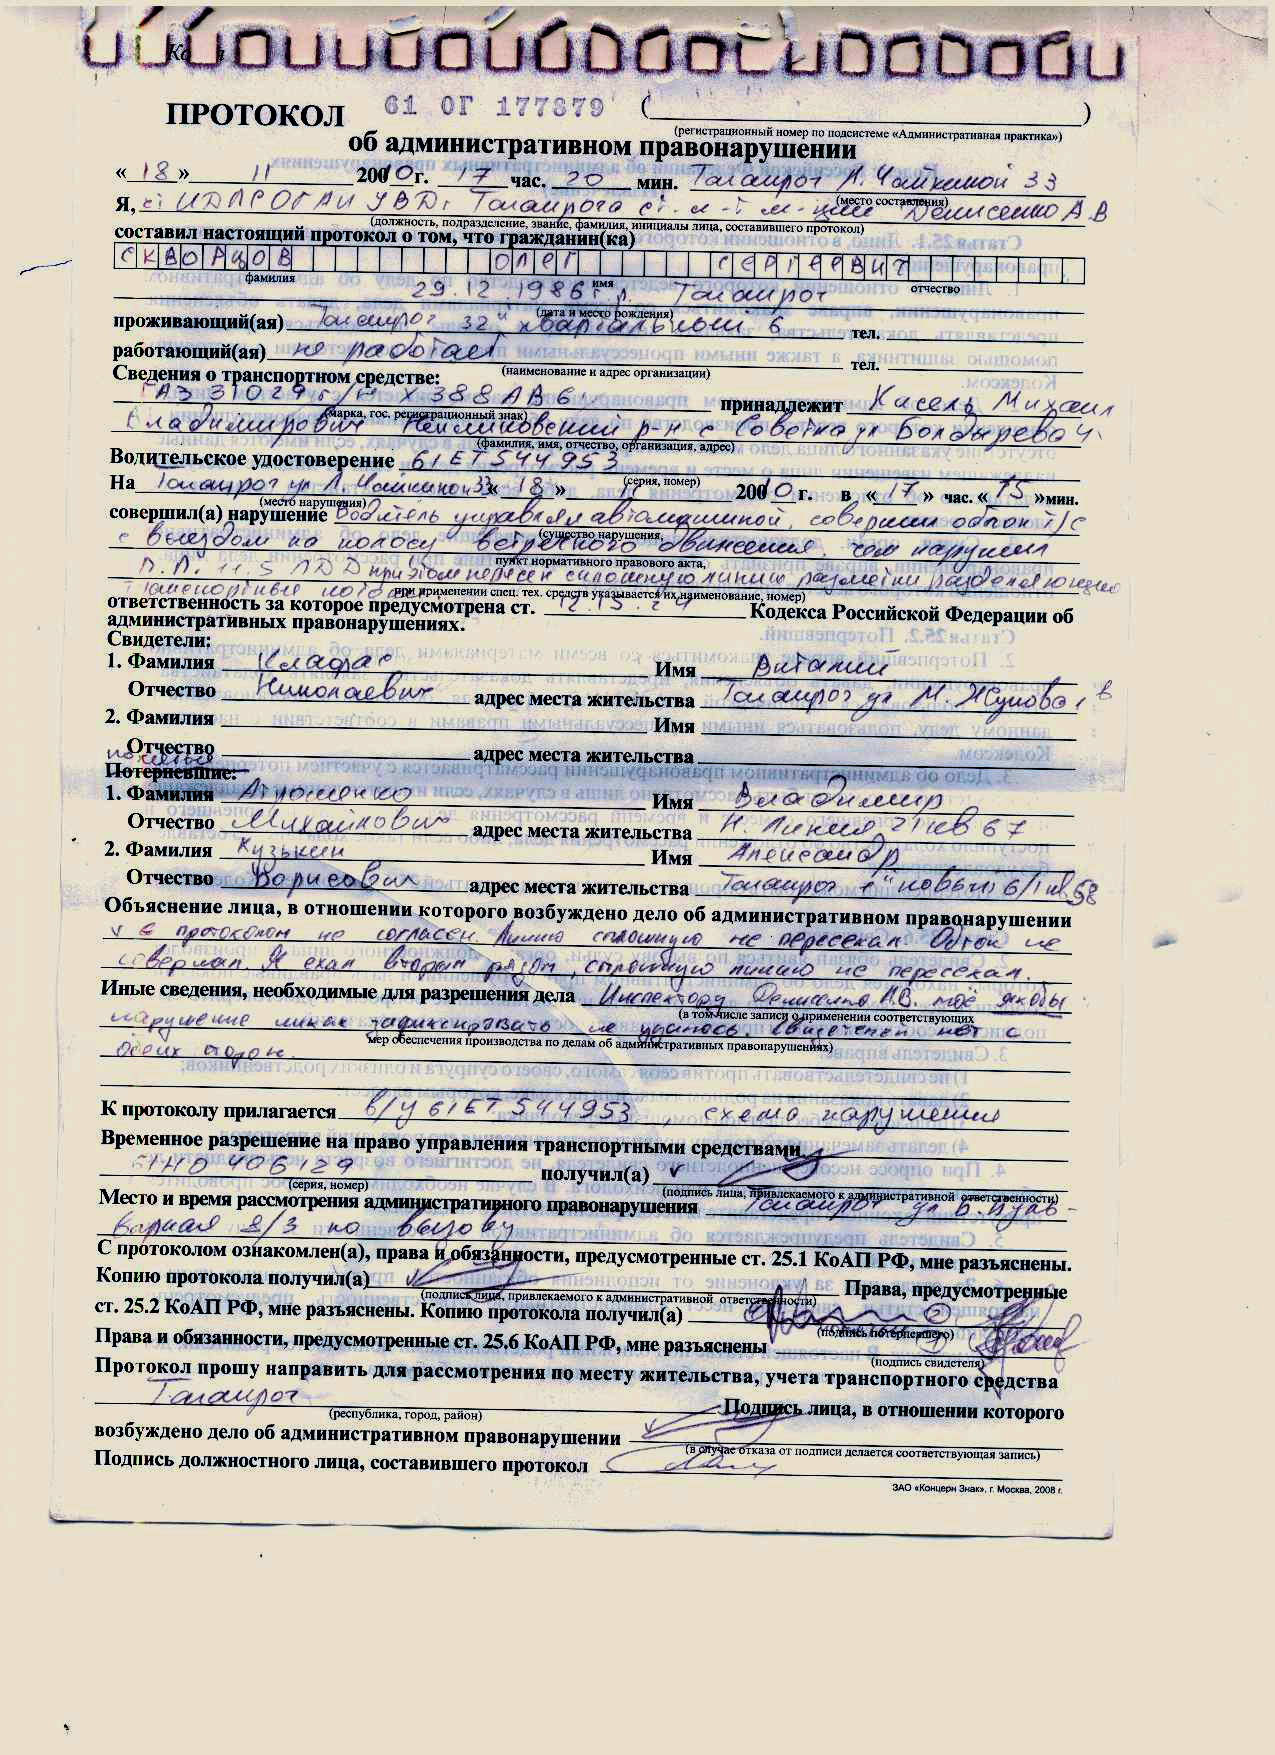 ПРОТОКОЛ 61 ОГ 177879 ( )
(регистрационный номер по подсистеме «Административная практика»)
об административном правонарушении
«18» 11 2010г. 17 час. 20 мин. Таганрог Л. Чайкиной 33
(место составления)
Я, ст ИДПС ОГАИ УВД г Таганрога ст. л-т м-ции Денисенко А.В
(должность, подразделение, звание, фамилия, инициалы лица, составившего протокол)
составил настоящий протокол о том, что гражданин(ка)
СКВОРЦОВ ОЛЕГ СЕРГЕЕВИЧ
фамилия имя отчество
29.12.1986г. р. Таганрог
(дата и место рождения)
проживающий(ая) Таганрог 32й квартальный 6 тел.
работающий(ая) не работает тел.
(наименование и адрес организации)
Сведения о транспортном средстве:
ГАЗ 31029 г/н Х388АВ61 принадлежит Кисель Михаил
(марка, гос. регистрационный знак)
Владимирович Неклиновский р-н с Советка ул Болдырева 4
(фамилия, имя, отчество, организация, адрес)
Водительское удостоверение 61ЕТ544953
(серия, номер)
На Таганрог ул Л. Чайкиной 33 «18» 11 2010 г. в «17» час. «15» мин.
(место нарушения)
совершил(а) нарушение Водитель управлял автомашиной, совершил обгон т/с
(существо нарушения,
с выездом на полосу встречного движения, чем нарушил
пункт нормативного правового акта,
П.П. 11.5 ПДД при этом пересек сплошную линию разметки разделяющую
транспортные потоки
при применении спец. тех. средств указывается их наименование, номер)
ответственность за которое предусмотрена ст. 12.15 ч 4 Кодекса Российской Федерации об
административных правонарушениях.
Свидетели:
1. Фамилия Имя Виталий
Отчество Николаевич адрес места жительства Таганрог ул М. Жукова 1 в
2. Фамилия Имя
Отчество адрес места жительства
понятые
Потерпевшие:
1. Фамилия Имя Владимир
Отчество Михайлович адрес места жительства Н. Линия 21 кв 67
2. Фамилия Кузькин Имя Александр
Отчество Борисович адрес места жительства Таганрог 1й новый 6/1 кв 58
Объяснение лица, в отношении которого возбуждено дело об административном правонарушении
v с протоколом не согласен. Линию сплошную не пересекал. Обгон не
совершал. Я ехал вторым рядом, сплошную линию не пересекал.
Иные сведения, необходимые для разрешения дела Инспектору Денисенко А.В. моё якобы
(в том числе записи о применении соответствующих
нарушение никак зафиксировать не удалось. Свидетелей нет с
мер обеспечения производства по делам об административных правонарушениях)
обеих сторон.
К протоколу прилагается в/у 61ЕТ544953, схема нарушения
Временное разрешение на право управления транспортными средствами
61НО 406129 получил(а) v
(серия, номер) (подпись лица, привлекаемого к административной ответственности)
Место и время рассмотрения административного правонарушения Таганрог ул Б. Буль-
варная 8/3 по вызову
С протоколом ознакомлен(а), права и обязанности, предусмотренные ст. 25.1 КоАП РФ, мне разъяснены.
Копию протокола получил(а) v Права, предусмотренные
(подпись лица, привлекаемого к административной ответственности)
ст. 25.2 КоАП РФ, мне разъяснены. Копию протокола получил(а)
(подпись потерпевшего)
Права и обязанности, предусмотренные ст. 25.6 КоАП РФ, мне разъяснены
(подпись свидетеля)
Протокол прошу направить для рассмотрения по месту жительства, учета транспортного средства
Таганрог Подпись лица, в отношении которого
(республика, город, район)
возбуждено дело об административном правонарушении v
(в случае отказа от подписи делается соответствующая запись)
Подпись должностного лица, составившего протокол
ЗАО «Концерн Знак», г. Москва, 2008 г.